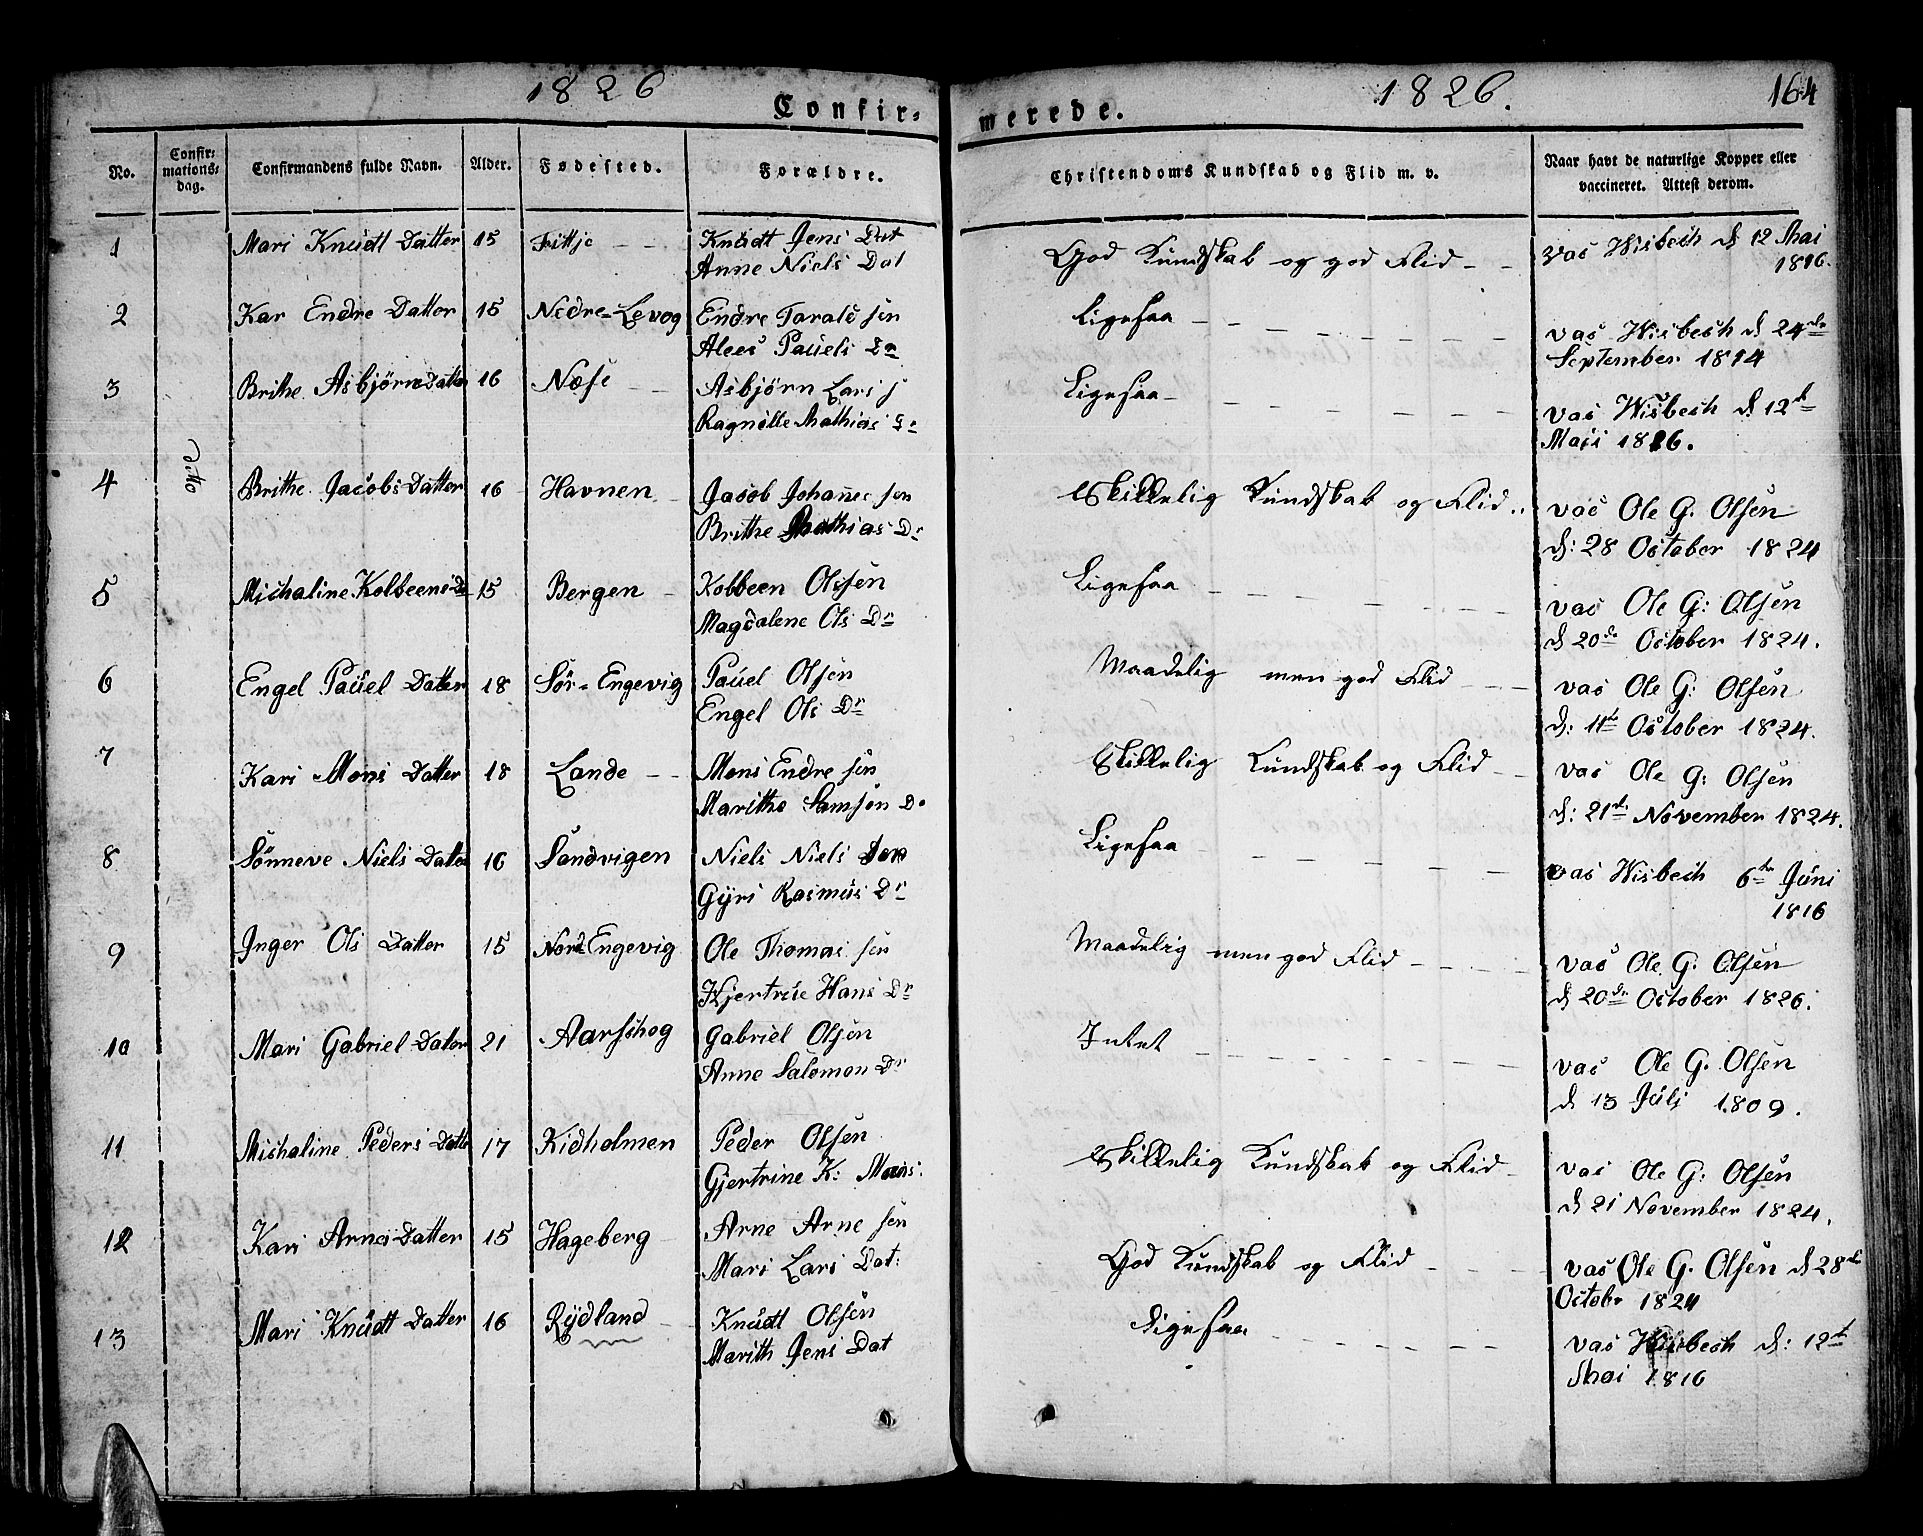 1826
Confir-
No. Confir-mations-dag. Confirmandens fulde Navn. Alder. Fødested. Forældre.
1 Mari Knudt Datter 15 Fittje Knudt Jens Dat
Anne Niels Dat
2 Kar Endre Datter 15 Nedre-Levog Endre Tarald sen
Alees Pauels Da
3 Brithe Asbjörns Datter 16 Nese Asbjörn Lars s
Ragnilte Mathias
ditto
4 Brithe Jacobs Datter 16 Havnen Jacob Johannes sen
Brithe Mathias Dr
5 Michaline Kolbeens Da 15 Bergen Kobbeen Olsen
Magdalene Ols Dr
6 Engel Pauel Datter 18 Sör-Engevig Pauel Olsen
Engel Ols Dr
7 Kari Mons Datter 18 Lande Mons Endre sen
Marithe Samson D
8 Sönneve Niels Datter 16 Sandvigen Niels Niels Son
Gyri Rasmus Dr
9 Inger Ols Datter 15 Nord Engevig Ole Thomas sen
Kjertrue Hans Dr
10 Mari Gabriel Dater 21 Aarschog Gabriel Olsen
Anne Salomon Dr
11 Michaline Peders Datte 17 Kidholmen Peder Olsen
Gjertrine K: Mons:
12 Kari Arnes Datter 15 Hageberg Arne Arne sen
Mari Lars Dat:
13 Mari Knudt Datter 16 Rydland Knudt Olsen
Marith Jens Dat
merede. 1826. 164
Christendoms Kundskab og Flid m. v. Naar havt de naturlige Kopper eller
vaccineret. Attest derom.
God Kundskab og god Flid vac Wisbech d 12 Mai
1816.
Ligesaa vac Wisbech d 24de
September 1814
Ligesaa vac Wisbech d. 12t
Maji 1816.
Skikkelig Kundskab og Flid.. vac Ole G. Olsen
d: 28 October 1824
Ligesaa vac Ole G: Olsen
d 20de October 1824.
Maadelig men god Flid vac Ole G: Olsen
d: 11t October 1824.
Skikkelig Kundskab og Flid vac Ole G: Olsen
d: 21de November 1824.
Ligesaa vac Wisbech 6te Juni
1816
Maadelig men god Flid vac Ole G. Olsen
d 20de October 1826.
Intet vac Ole G. Olsen
d 13 Juli 1809.
Skikkelig Kundskab og Flid vac Ole G: Olsen
d 21 November 1824.
God Kundskab og Flid vac Ole G. Olsen d 28de
Octobr 1824
Ligesaa vac Wisbech d: 12t
Mai 1816